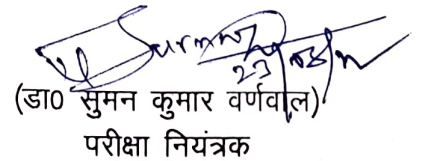 (डा0 सुमन कुमार वर्णवाल)
परीक्षा नियंत्रक